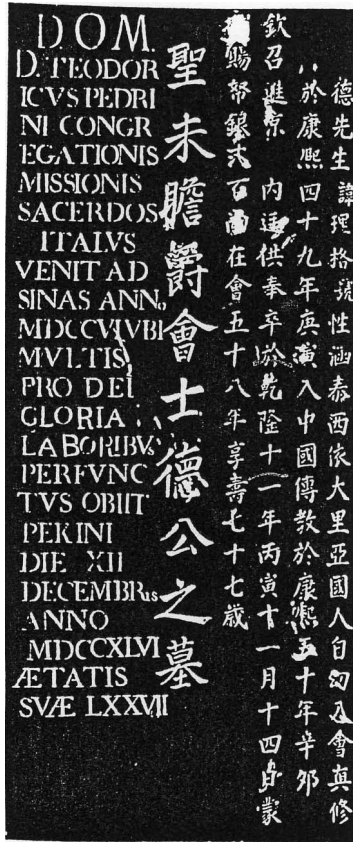 D.O.M.
D. TEODOR
ICVS PEDRI
NI CONGR
EGATIONIS
MISSIONIS
SACERDOS
ITALVS
VENIT AD
SINAS ANNo
MDCCVIVBI
MVLTIS
PRO DEI
GLORIA
LABORIBVS
PERFVNC
TVS OBIIT
PEKINI
DIE XII
DECEMBRis
ANNO
MDCCXLVI
ÆTATIS
SVÆ LXXVII
聖未膽爵會士德公之墓
德先生諱理格號性涵泰西依大里亞國人自幼入會真修
於康熙四十九年庚寅入中國傳教於康熙五十年辛卯
欽召進京 內廷供奉卒於乾隆十一年丙寅十一月十四日蒙
賜帑銀弍百両在會五十八年享壽七十七歲